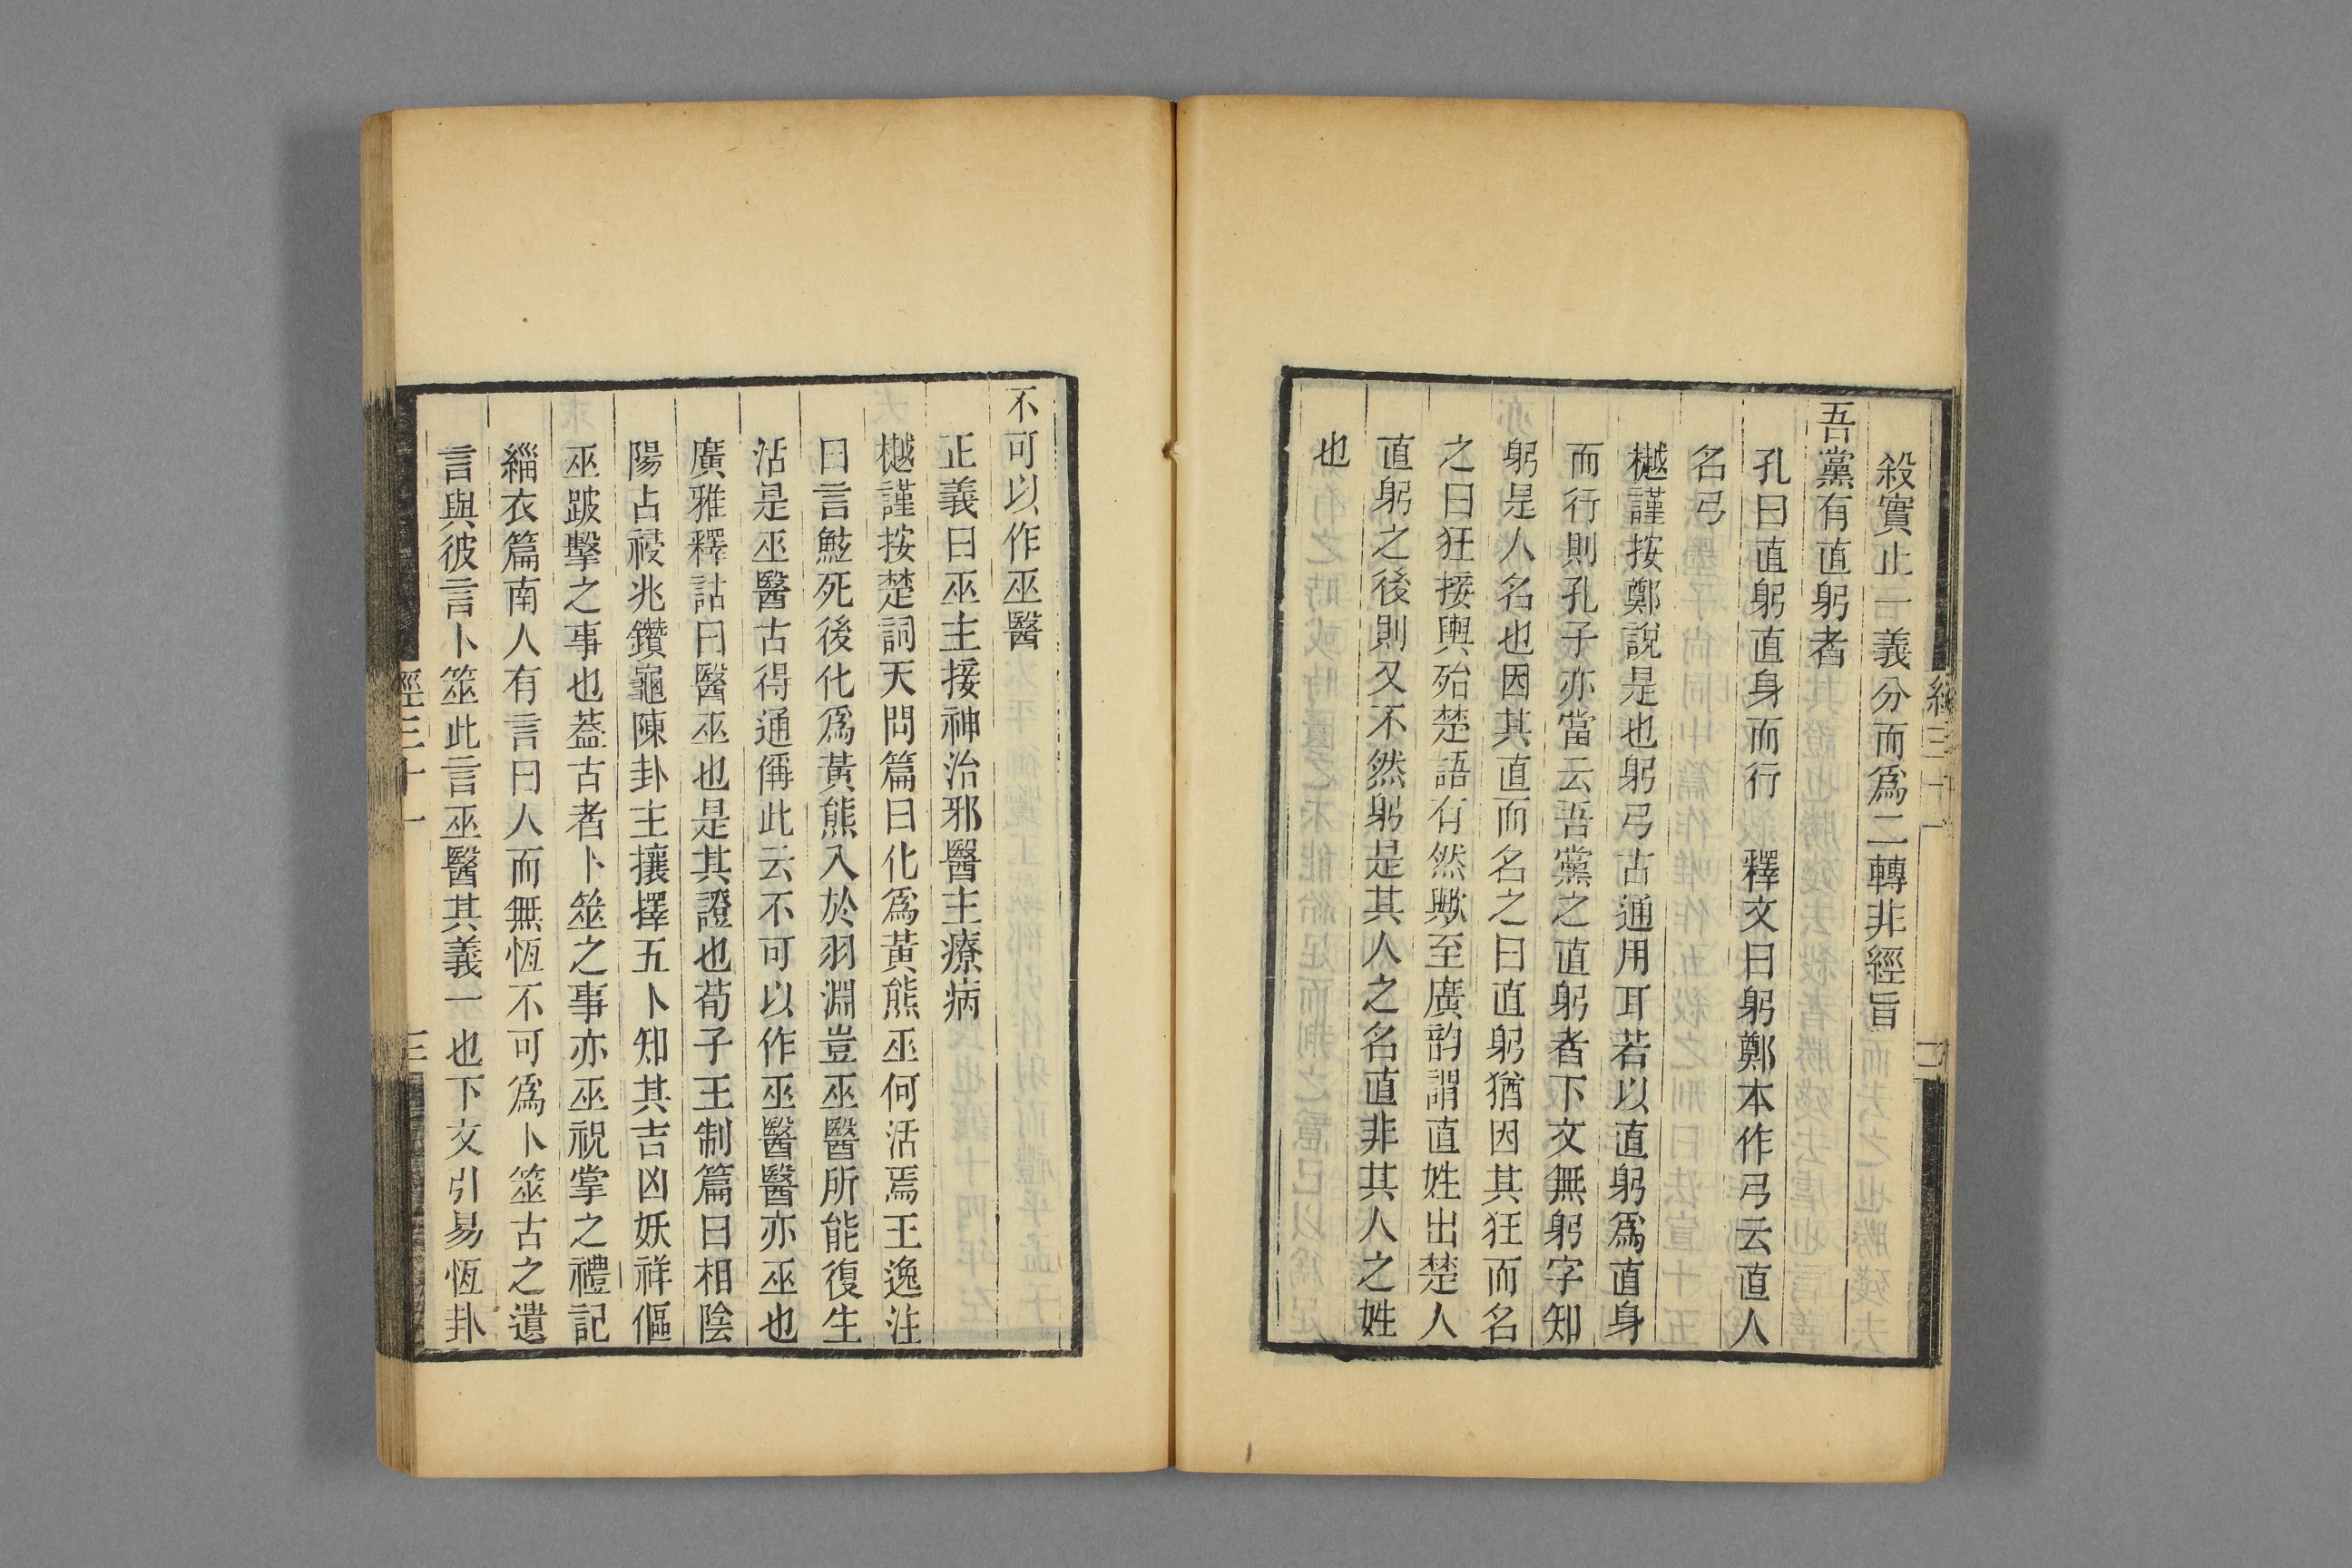 殺實止一義分而爲二轉非經旨
吾黨有直躬者
孔曰直躬直身而行 釋文曰躬鄭本作弓云直人
名弓
樾謹按鄭說是也躬弓古通用耳若以直躬爲直身
而行則孔子亦當云吾黨之直躬者下文無躬字知
躬是人名也因其直而名之曰直躬猶因其狂而名
之曰狂接輿殆楚語有然歟至廣韵謂直姓出楚人
直躬之後則又不然躬是其人之名直非其人之姓
也
不可以作巫醫
正義曰巫主接神治邪醫主療病
樾謹按楚詞天問篇曰化爲黃熊巫何活焉王逸注
曰言鮌死後化爲黃熊入於羽淵豈巫醫所能復生
活是巫醫古得通偁此云不可以作巫醫醫亦巫也
廣雅釋詁曰醫巫也是其證也荀子王制篇曰相陰
陽占祲兆鑽龜陳卦主攘擇五卜知其吉凶妖祥傴
巫跛擊之事也蓋古者卜筮之事亦巫祝掌之禮記
緇衣篇南人有言曰人而無恆不可爲卜筮古之遺
言與彼言卜筮此言巫醫其義一也下文引易恆卦
經三十一
三